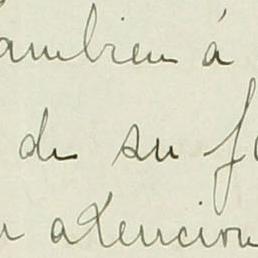 ambien á
de su f
atencion